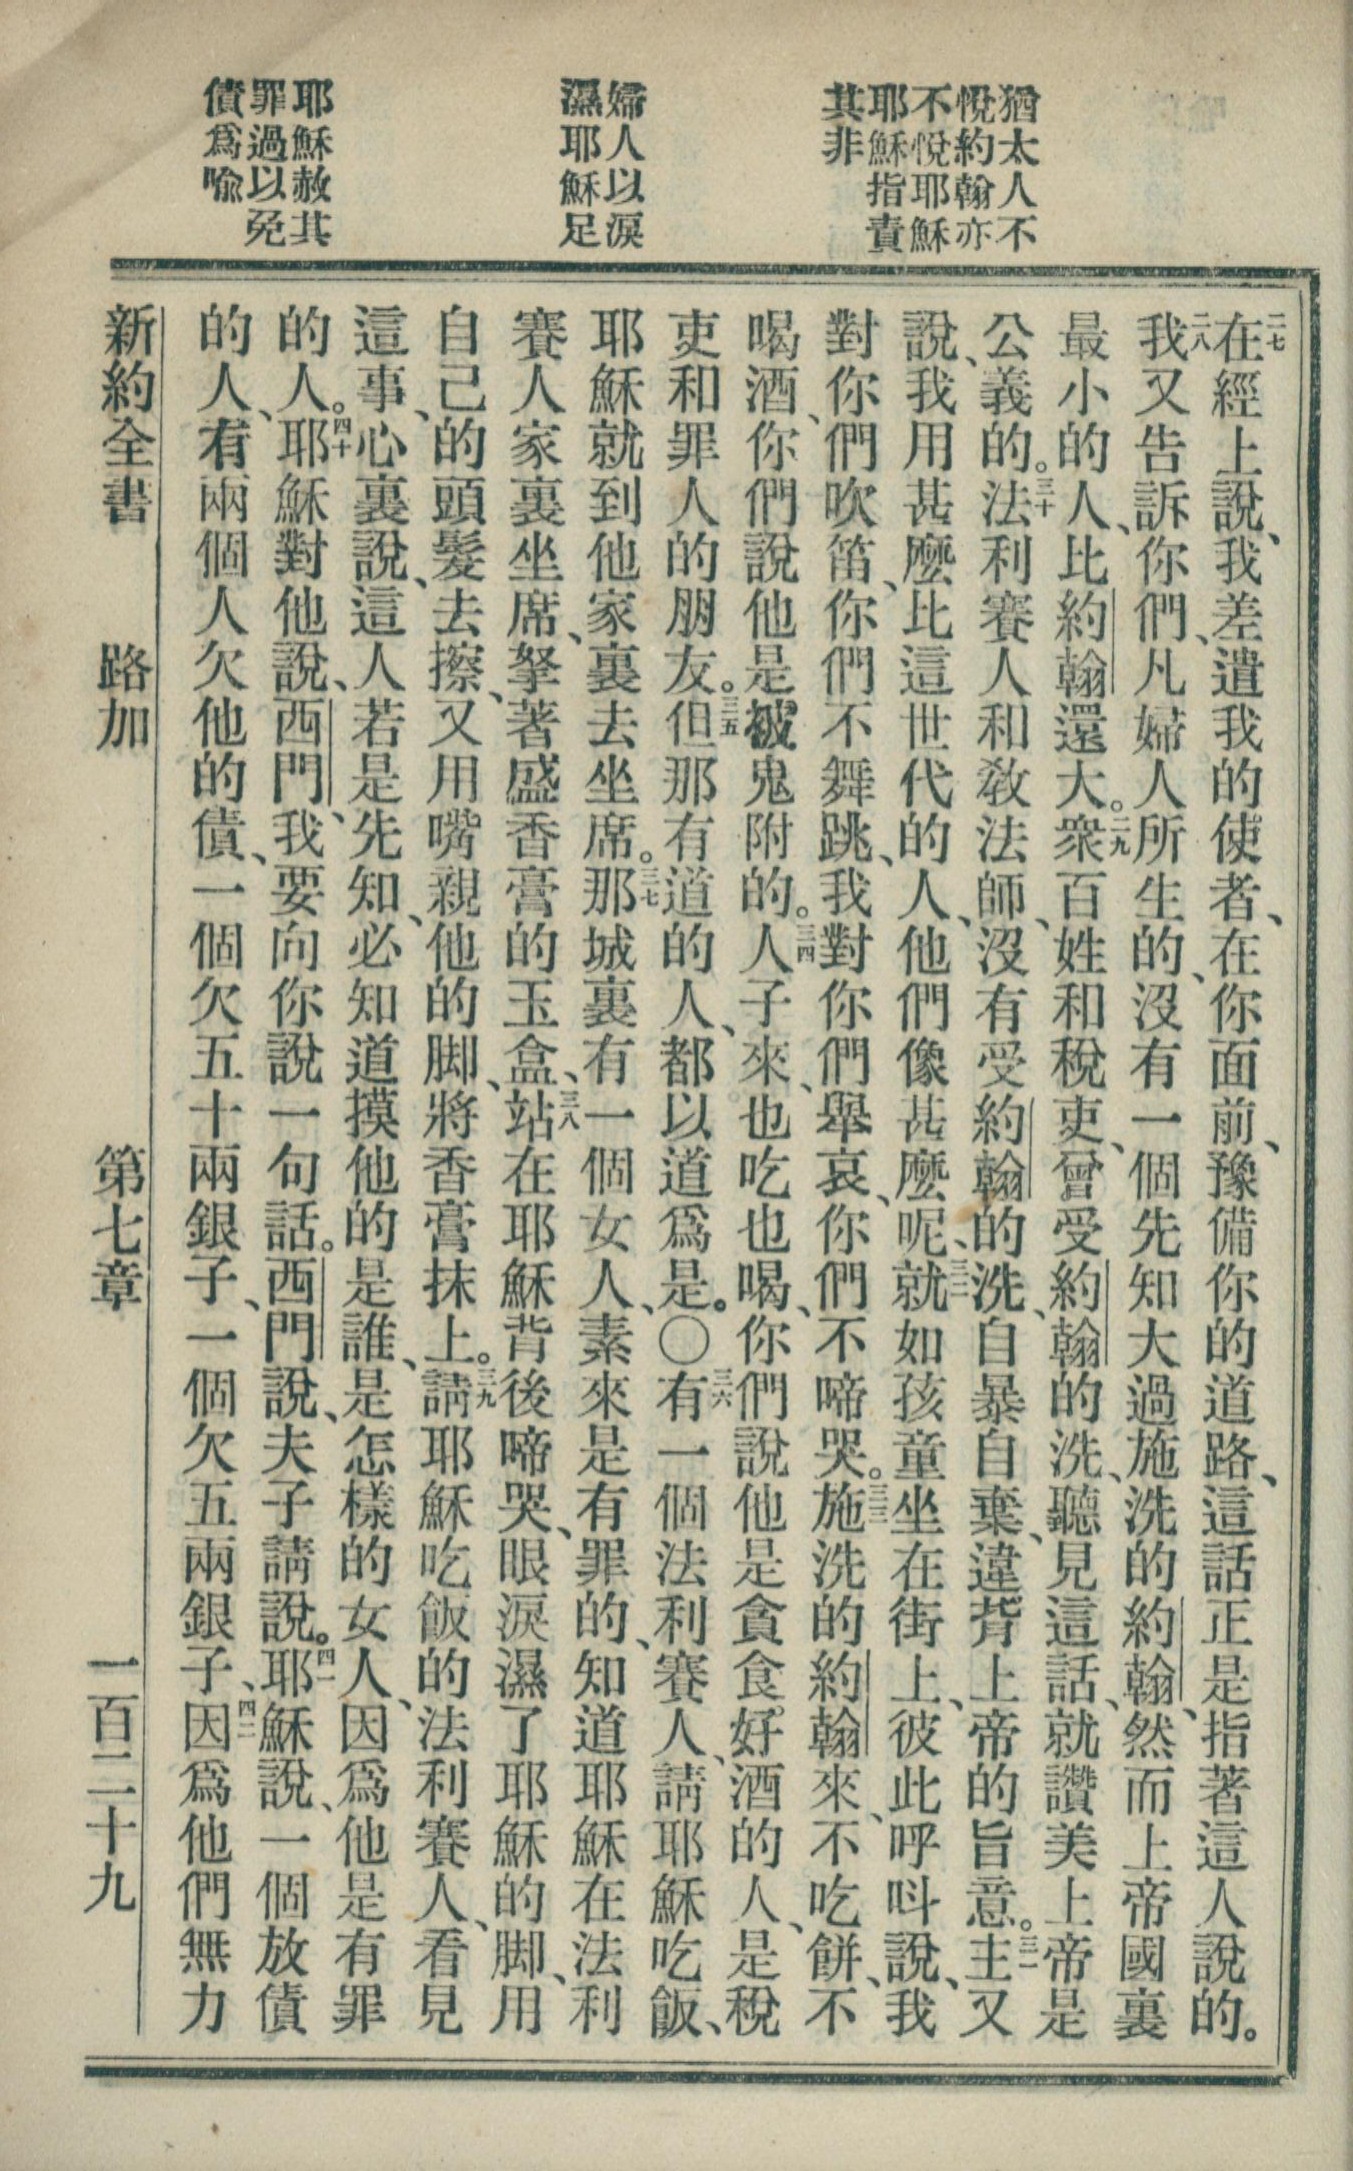 猶太人不
悅約翰亦
不悅耶穌
耶穌指責
其非
婦人以淚
濕耶穌足
耶穌赦其
罪過以免
債爲喩
二七在經上說、我差遣我的使者、在你面前、豫備你的道路、這話正是指著這人說的。
二八我又告訴你們、凡婦人所生的、沒有一個先知大過施洗的約翰、然而上帝國裏
最小的人、比約翰還大。二九衆百姓和稅吏、曾受約翰的洗、聽見這話、就讚美上帝是
公義的。三十法利賽人和敎法師、沒有受約翰的洗、自暴自棄、違背上帝的旨意。三一主又
說、我用甚麼比這世代的人、他們像甚麼呢、三二就如孩童坐在街上、彼此呼呌說、我
對你們吹笛、你們不舞跳、我對你們舉哀、你們不啼哭。三三施洗的約翰來、不吃餅、不
喝酒、你們說他是被鬼附的。三四人子來、也吃也喝、你們說他是貪食好酒的人、是稅
吏和罪人的朋友。三五但那有道的人、都以道爲是。〇三六有一個法利賽人、請耶穌吃飯、
耶穌就到他家裏去坐席。三七那城裏有一個女人、素來是有罪的、知道耶穌在法利
賽人家裏坐席、拏著盛香膏的玉盒、三八站在耶穌背後啼哭、眼淚濕了耶穌的脚、用
自己的頭髮去擦、又用嘴親他的脚、將香膏抹上。三九請耶穌吃飯的法利賽人、看見
這事、心裏說、這人若是先知、必知道摸他的是誰、是怎樣的女人、因爲他是有罪
的人。四十耶穌對他說、西門、我要向你說一句話。西門說、夫子請說。四一耶穌說、一個放債
的人、有兩個人欠他的債、一個欠五十兩銀子、一個欠五兩銀子、四二因爲他們無力
新約全書　路加　第七章　一百二十九